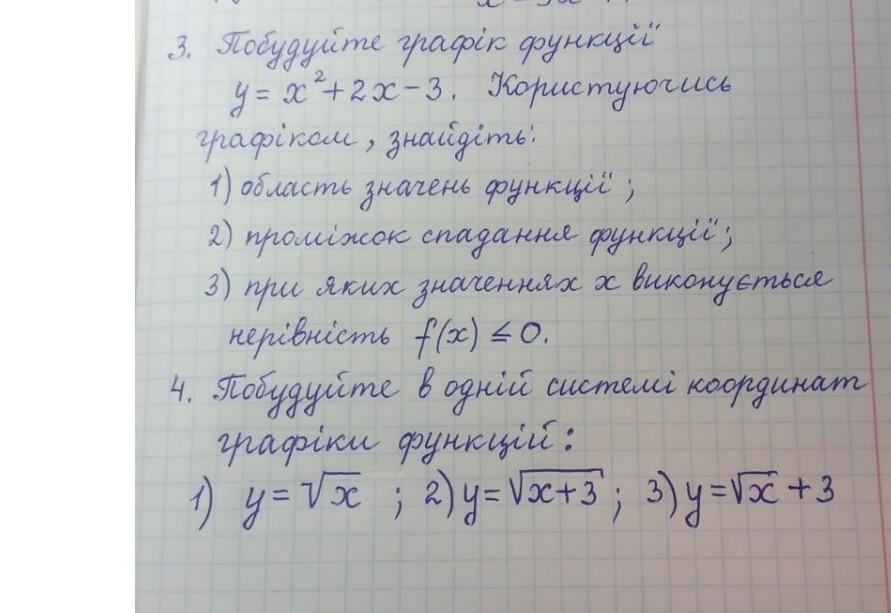 3. Побудуйте графік функції
y = x² + 2x - 3. Користуючись
графіком, знайдіть:
1) область значень функції;
2) проміжок спадання функції;
3) при яких значеннях x виконується
нерівність f(x) ≤ 0.
4. Побудуйте в одній системі координат
графіки функцій:
1) y = √x ; 2) y = √(x+3) ; 3) y = √x + 3